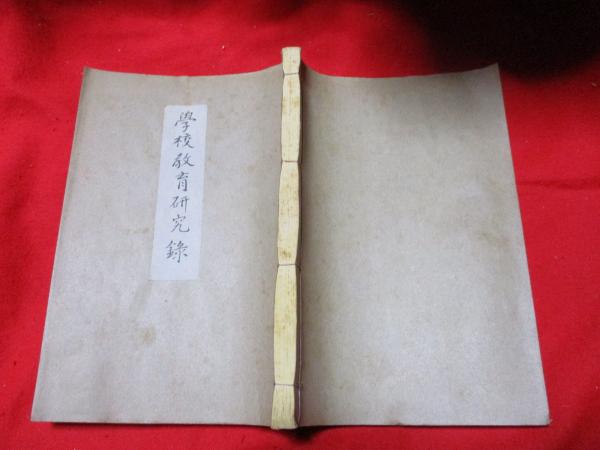 學校教育研究錄